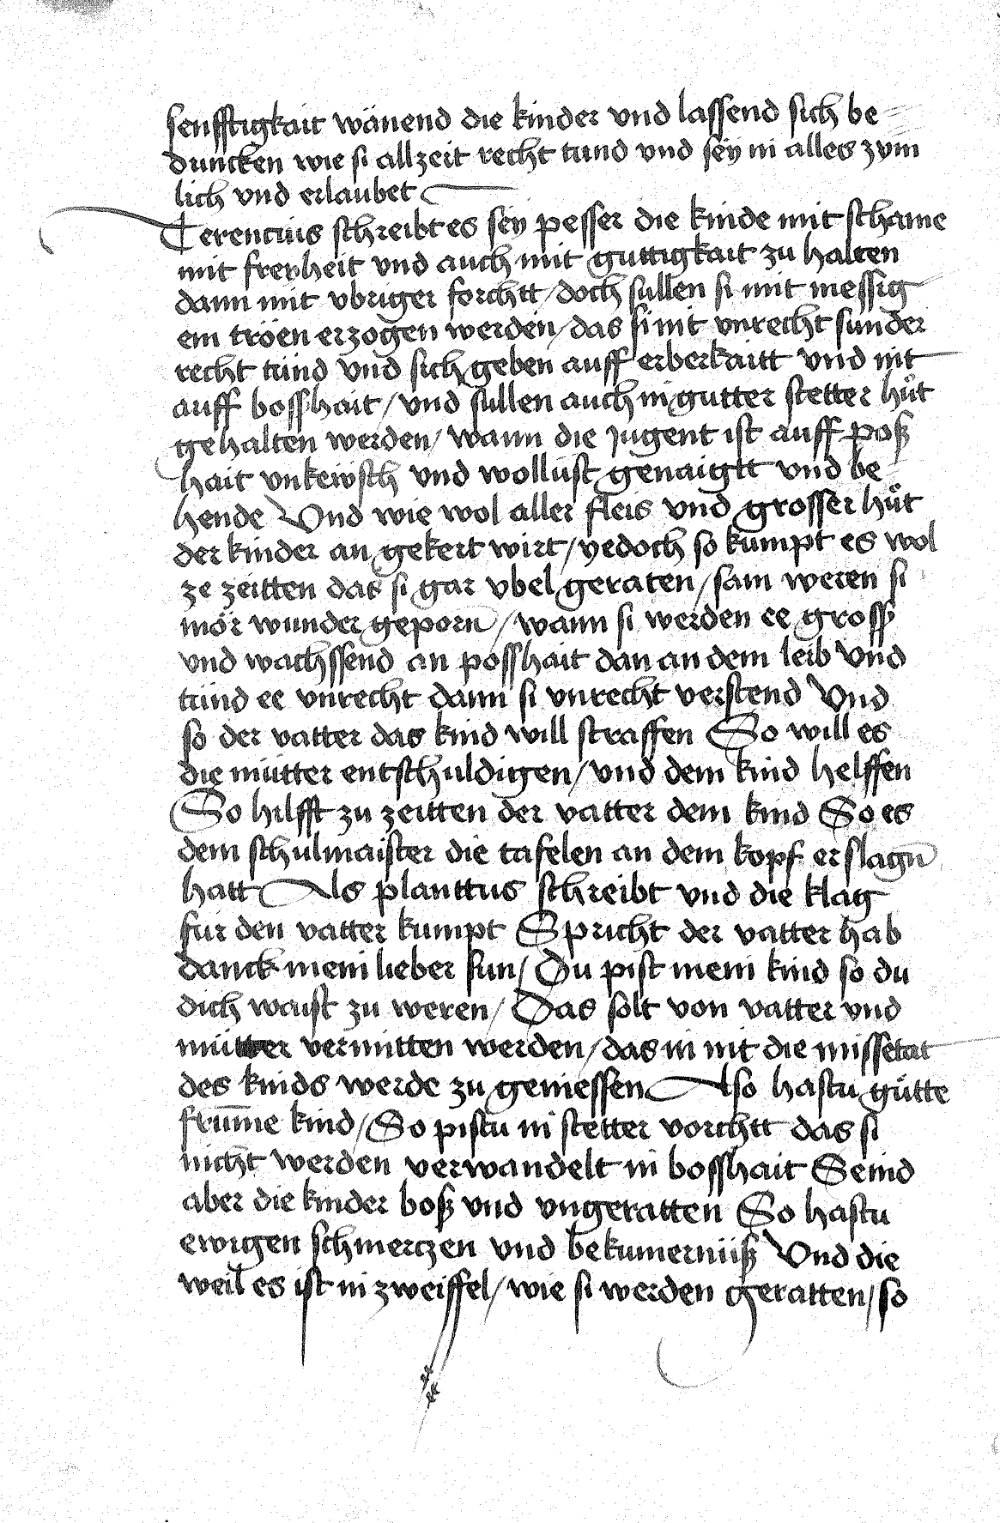 senfftigkait wänend die kinder vnd lassend sich be=
duncken wie si allzeit recht tund vnd sey in alles zym
lich vnd erlaubet
Terencius schreibt es sey pesser die kinde mit schame
mit freyheit vnd auch mit guttigkait zu halten
dann mit vbriger forchtt / doch sullen si mit messig
em tröen erzogen werden / das si nit vnrecht sunder
recht tünd vnd sich geben auff erberkaitt vnd nit
auff bosshait / vnd sullen auch in gutter stetter hůt
gehalten werden / wann die jugent ist auff poß
hait vnkeüsch vnd wollust genaigtt vnd be=
hende Vnd wie wol aller fleis vnd grosser hůt
der kinder an gekert wirt / yedoch so kumpt es wol
ze zeitten das si gar vbel geraten / sam weren si
mör wunder geporn̄ / wann si werden ee gross
vnd wachssend an posshait dan an dem leib Vnd
tünd ee vnrecht dann si vnrecht verstend Vnd
so der vatter das kind will straffen So will es
die mütter entschuldigen / vnd dem kind helffen
So hilfft zu zeitten der vatter dem kind So es
dem schulmaister die tafelen an dem kopf erslagn̄
hatt Als planttus schreibt vnd die klag
für den vatter kumpt Spricht der vatter hab
danck mein lieber sun / Du pist mein kind so du
dich waist zu weren / Das solt von vatter vnd
mütter vermitten werden / das in nit die missetat
des kinds werde zu geniessen Also hastu gůtte
frum̄e kind / So pistu in stetter vorchtt das si
nicht werden verwandelt in bosshait Seind
aber die kinder boß vnd vngeratten So hastu
ewigen schmerczen vnd bekumernüß Vnd die
weil es ist in zweiffel / wie si werden geratten / so